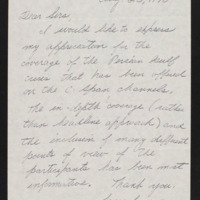 Dear Sirs
I would like to express
my appreciation for the
coverage of the Persian Gulf
crises that has been offered
on the C-Span channels.
the in-depth coverage (rather
than headline approach) and
the inclusion of many different
points of view of the
participants has been most
informative. Thank you.